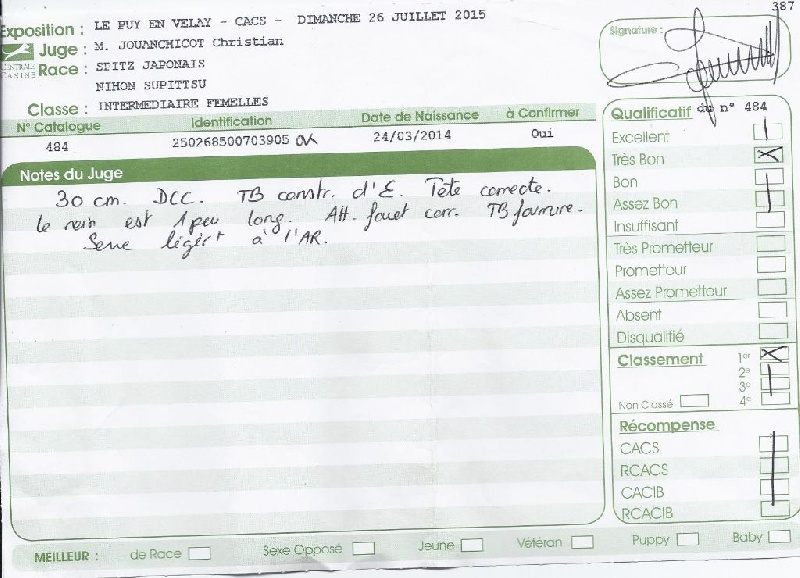 387
Exposition : LE PUY EN VELAY - CACS - DIMANCHE 26 JUILLET 2015
Signature :
Juge : M. JOUANCHICOT Christian
CENTRALE CANINE
Race : SPITZ JAPONAIS
NIHON SUPITTSU
Classe : INTERMEDIAIRE FEMELLES
N° Catalogue Identification Date de Naissance à Confirmer
484 250268500703905 OK 24/03/2014 Oui
Notes du Juge
30 cm. DCC. TB constr. d'E. Tete correcte.
le rein est 1 peu long. Att. fouet corr. TB fourrure.
Serre légèrt à l'AR.
Qualificatif du n° 484
Excellent
Très Bon
Bon
Assez Bon
Insuffisant
Très Prometteur
Prometteur
Assez Prometteur
Absent
Disqualifié
Classement 1er
2e
3e
Non Classé 4e
Récompense
CACS
RCACS
CACIB
RCACIB
MEILLEUR : de Race Sexe Opposé Jeune Vétéran Puppy Baby